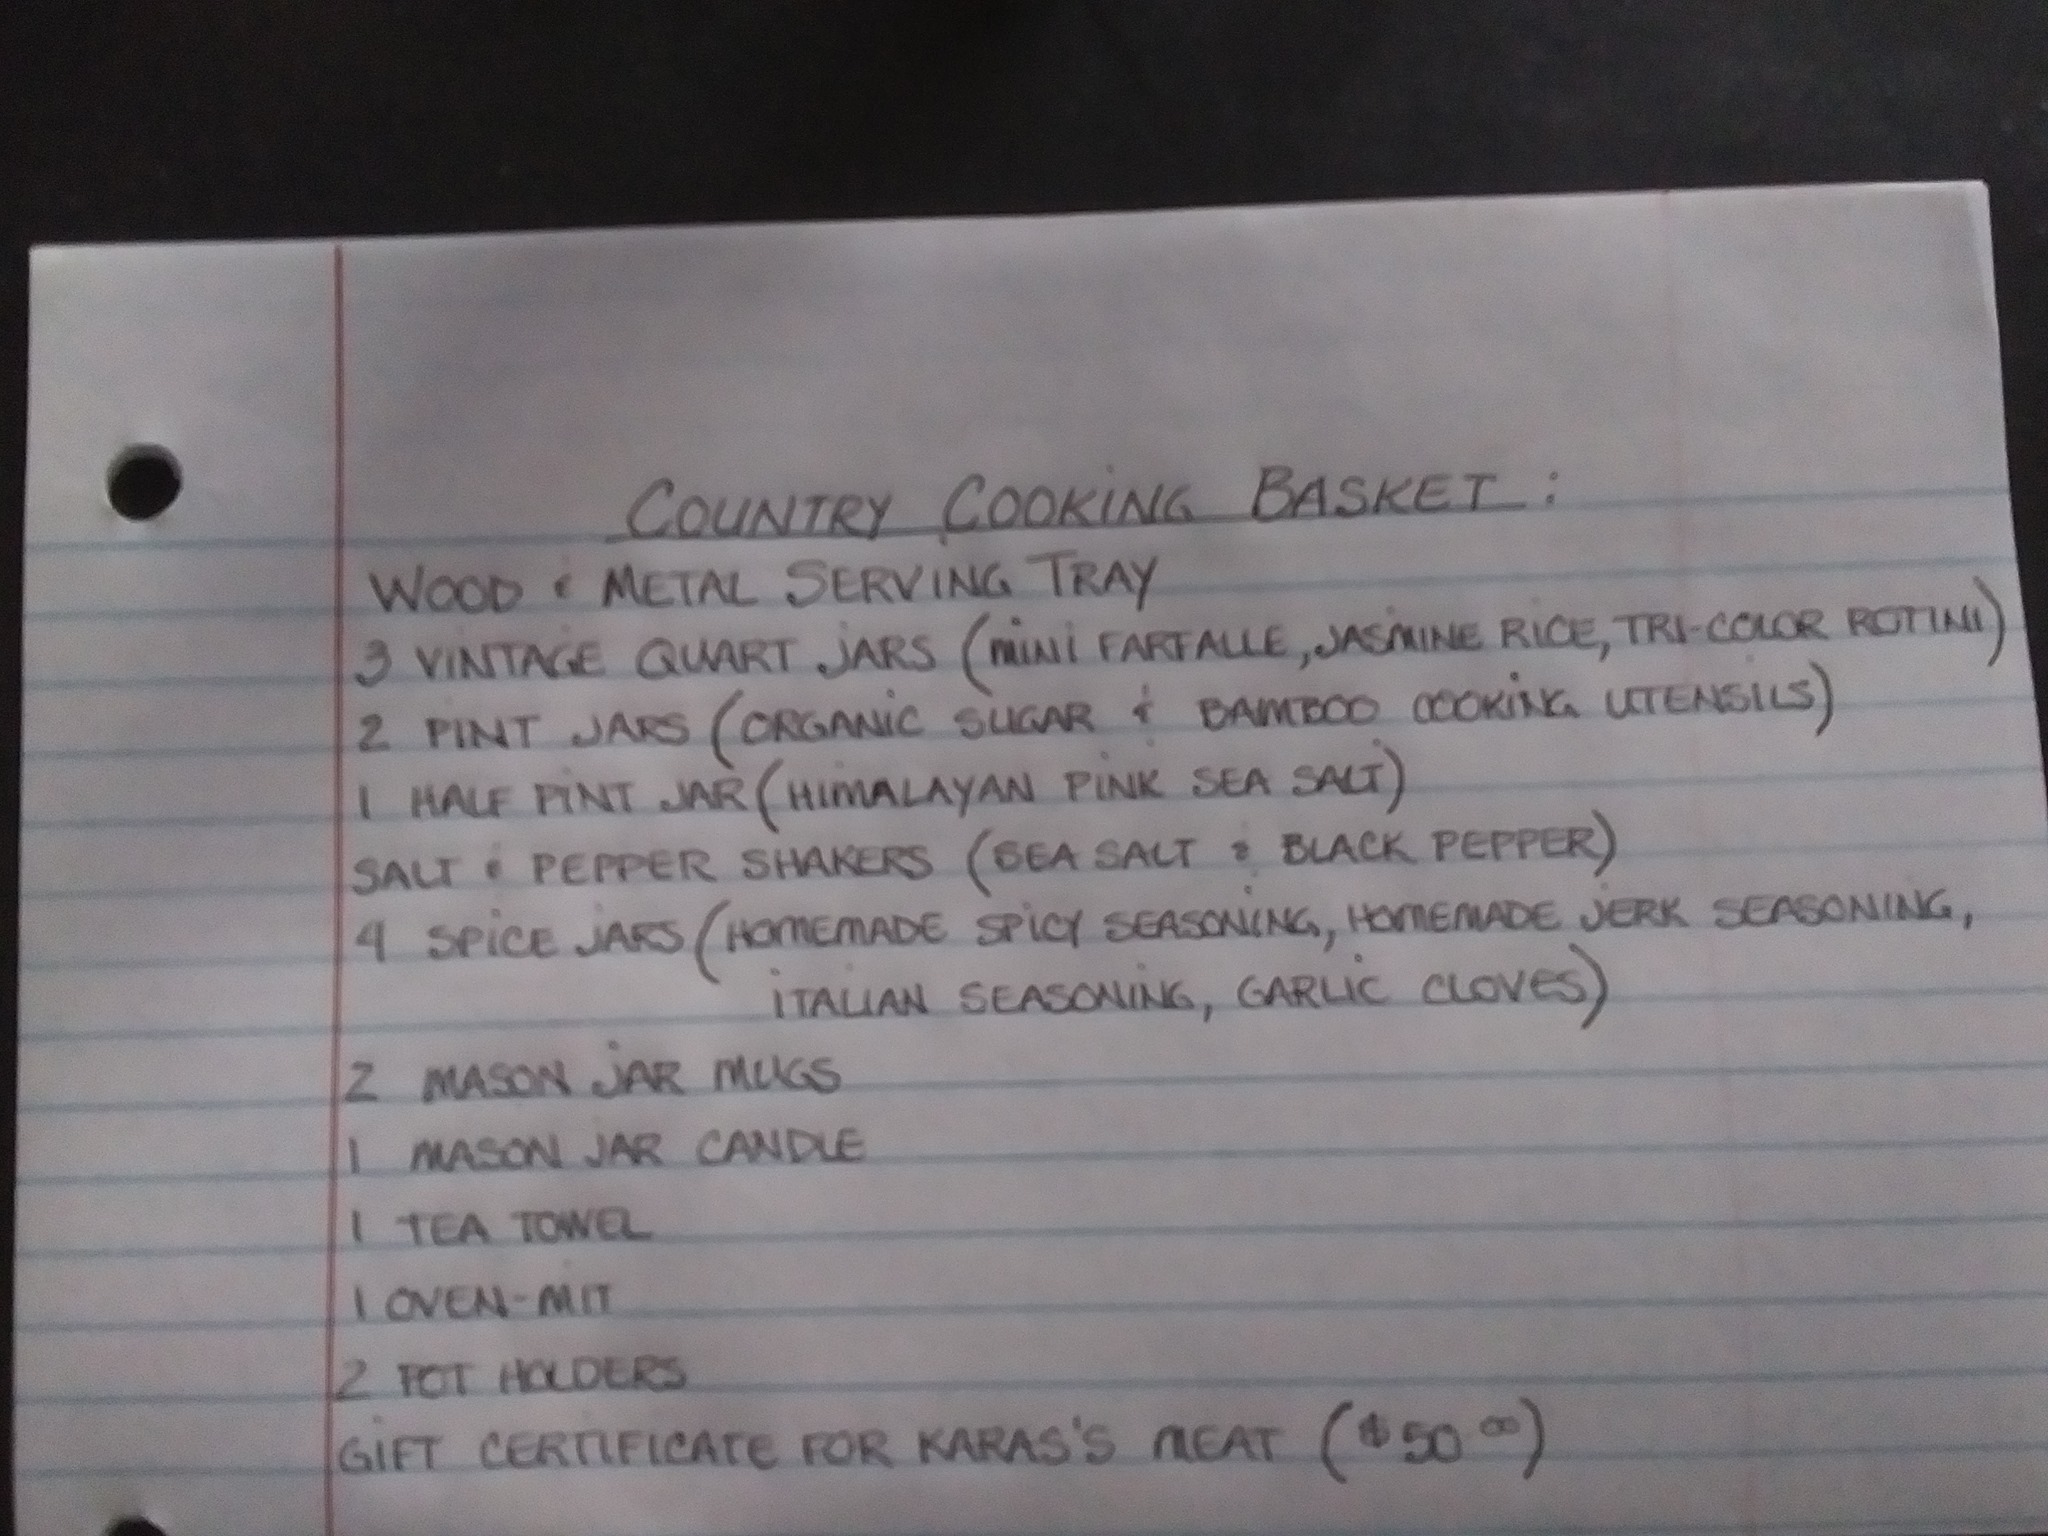 COUNTRY COOKING BASKET:
WOOD & METAL SERVING TRAY
3 VINTAGE QUART JARS (MINI FARFALLE, JASMINE RICE, TRI-COLOR ROTINI)
2 PINT JARS (ORGANIC SUGAR & BAMBOO COOKING UTENSILS)
1 HALF PINT JAR (HIMALAYAN PINK SEA SALT)
SALT & PEPPER SHAKERS (SEA SALT & BLACK PEPPER)
4 SPICE JARS (HOMEMADE SPICY SEASONING, HOMEMADE JERK SEASONING,
ITALIAN SEASONING, GARLIC CLOVES)
2 MASON JAR MUGS
1 MASON JAR CANDLE
1 TEA TOWEL
1 OVEN-MIT
2 POT HOLDERS
GIFT CERTIFICATE FOR KARAS'S MEAT ($50.00)